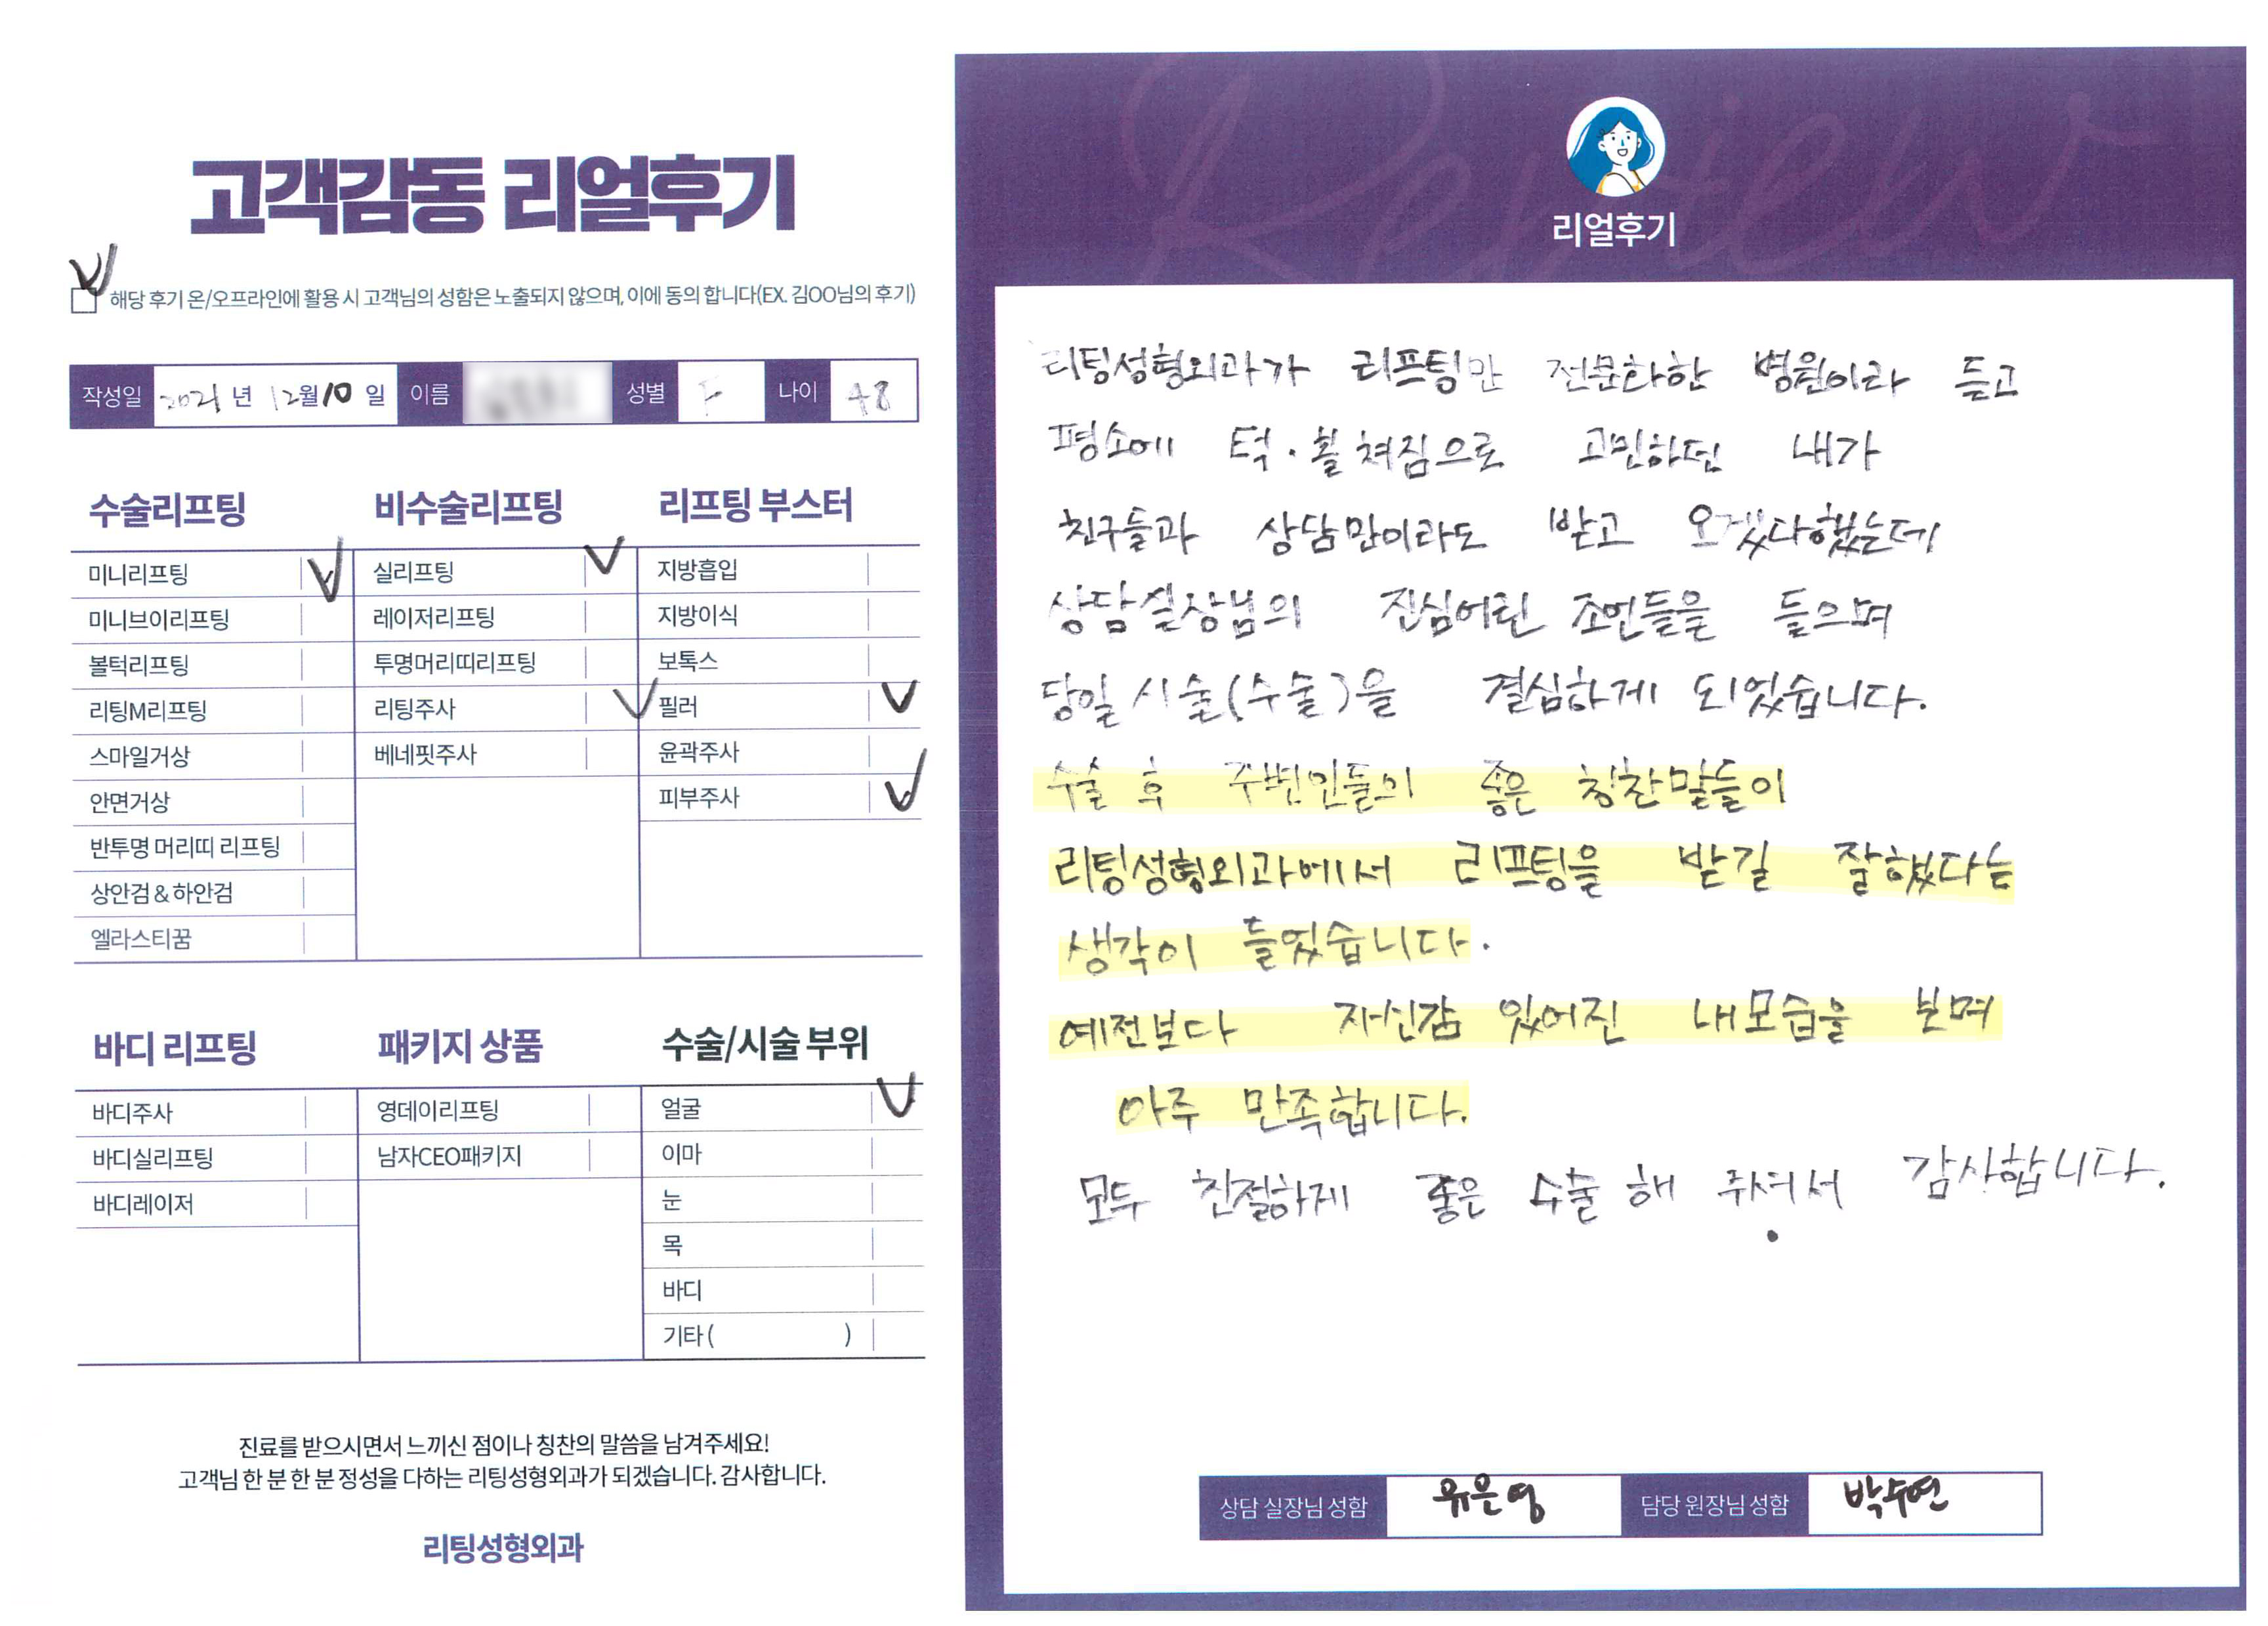 고객감동 리얼후기
해당 후기 온/오프라인에 활용 시 고객님의 성함은 노출되지 않으며, 이에 동의 합니다(EX. 김OO님의 후기)
작성일 2021 년 12월 10 일 이름 성별 F 나이 48
수술리프팅
미니리프팅
미니브이리프팅
볼턱리프팅
리팅M리프팅
스마일거상
안면거상
반투명 머리띠 리프팅
상안검 & 하안검
엘라스티꿈
비수술리프팅
실리프팅
레이저리프팅
투명머리띠리프팅
리팅주사
베네핏주사
리프팅 부스터
지방흡입
지방이식
보톡스
필러
윤곽주사
피부주사
바디 리프팅
바디주사
바디실리프팅
바디레이저
패키지 상품
영데이리프팅
남자CEO패키지
수술/시술 부위
얼굴
이마
눈
목
바디
기타 ( )
진료를 받으시면서 느끼신 점이나 칭찬의 말씀을 남겨주세요!
고객님 한 분 한 분 정성을 다하는 리팅성형외과가 되겠습니다. 감사합니다.
리팅성형외과
Review
리얼후기
리팅성형외과가 리프팅만 전문화한 병원이라 듣고
평소에 턱·볼 쳐짐으로 고민하던 내가
친구들과 상담만이라도 받고 오겠다했는데
상담실장님의 진심어린 조언들을 들으며
당일 시술(수술)을 결심하게 되었습니다.
수술 후 주변인들의 좋은 칭찬말들이
리팅성형외과에서 리프팅을 받길 잘했다는
생각이 들었습니다.
예전보다 자신감 있어진 내모습을 보며
아주 만족합니다.
모두 친절하게 좋은 수술 해 주셔서 감사합니다.
상담 실장님 성함 유은영 담당 원장님 성함 박수연